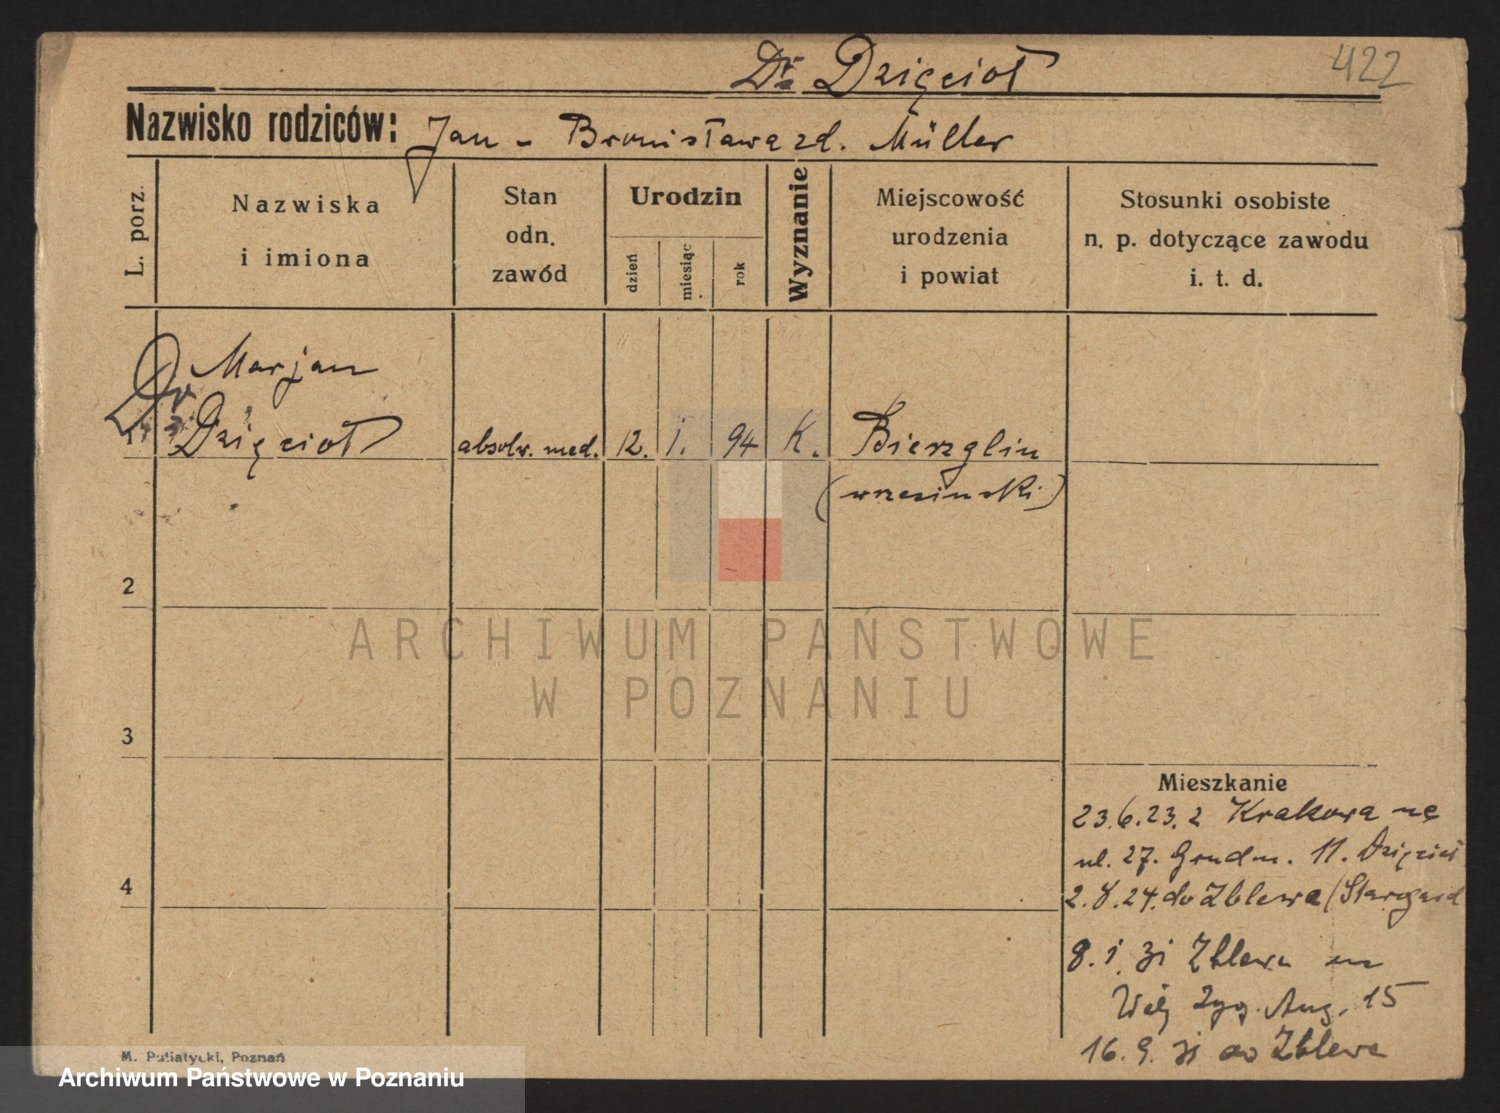 Dr Dzięcioł
422
Nazwisko rodziców: Jan - Bronisława zd. Müller
L. porz.
Nazwiska
i imiona
Stan
odn.
zawód
Urodzin
dzień
miesiąc
rok
Wyznanie
Miejscowość
urodzenia
i powiat
Stosunki osobiste
n. p. dotyczące zawodu
i. t. d.
Dr Marjan
Dzięcioł
absolw. med.
12.
1.
94
K.
Bierzglin
(wrzesiński)
2
3
4
ARCHIWUM PAŃSTWOWE
W POZNANIU
Mieszkanie
23.6.23. z Krakowa na
ul. 27. Grudn. 11. Dzięcioł
2.8.24. do Zblewa (Starogard
8.1. 31 Zblewa
Zyg. Aug. 15
16.9. 31 do Zblewa
M. Putiatycki, Poznań
Archiwum Państwowe w Poznaniu